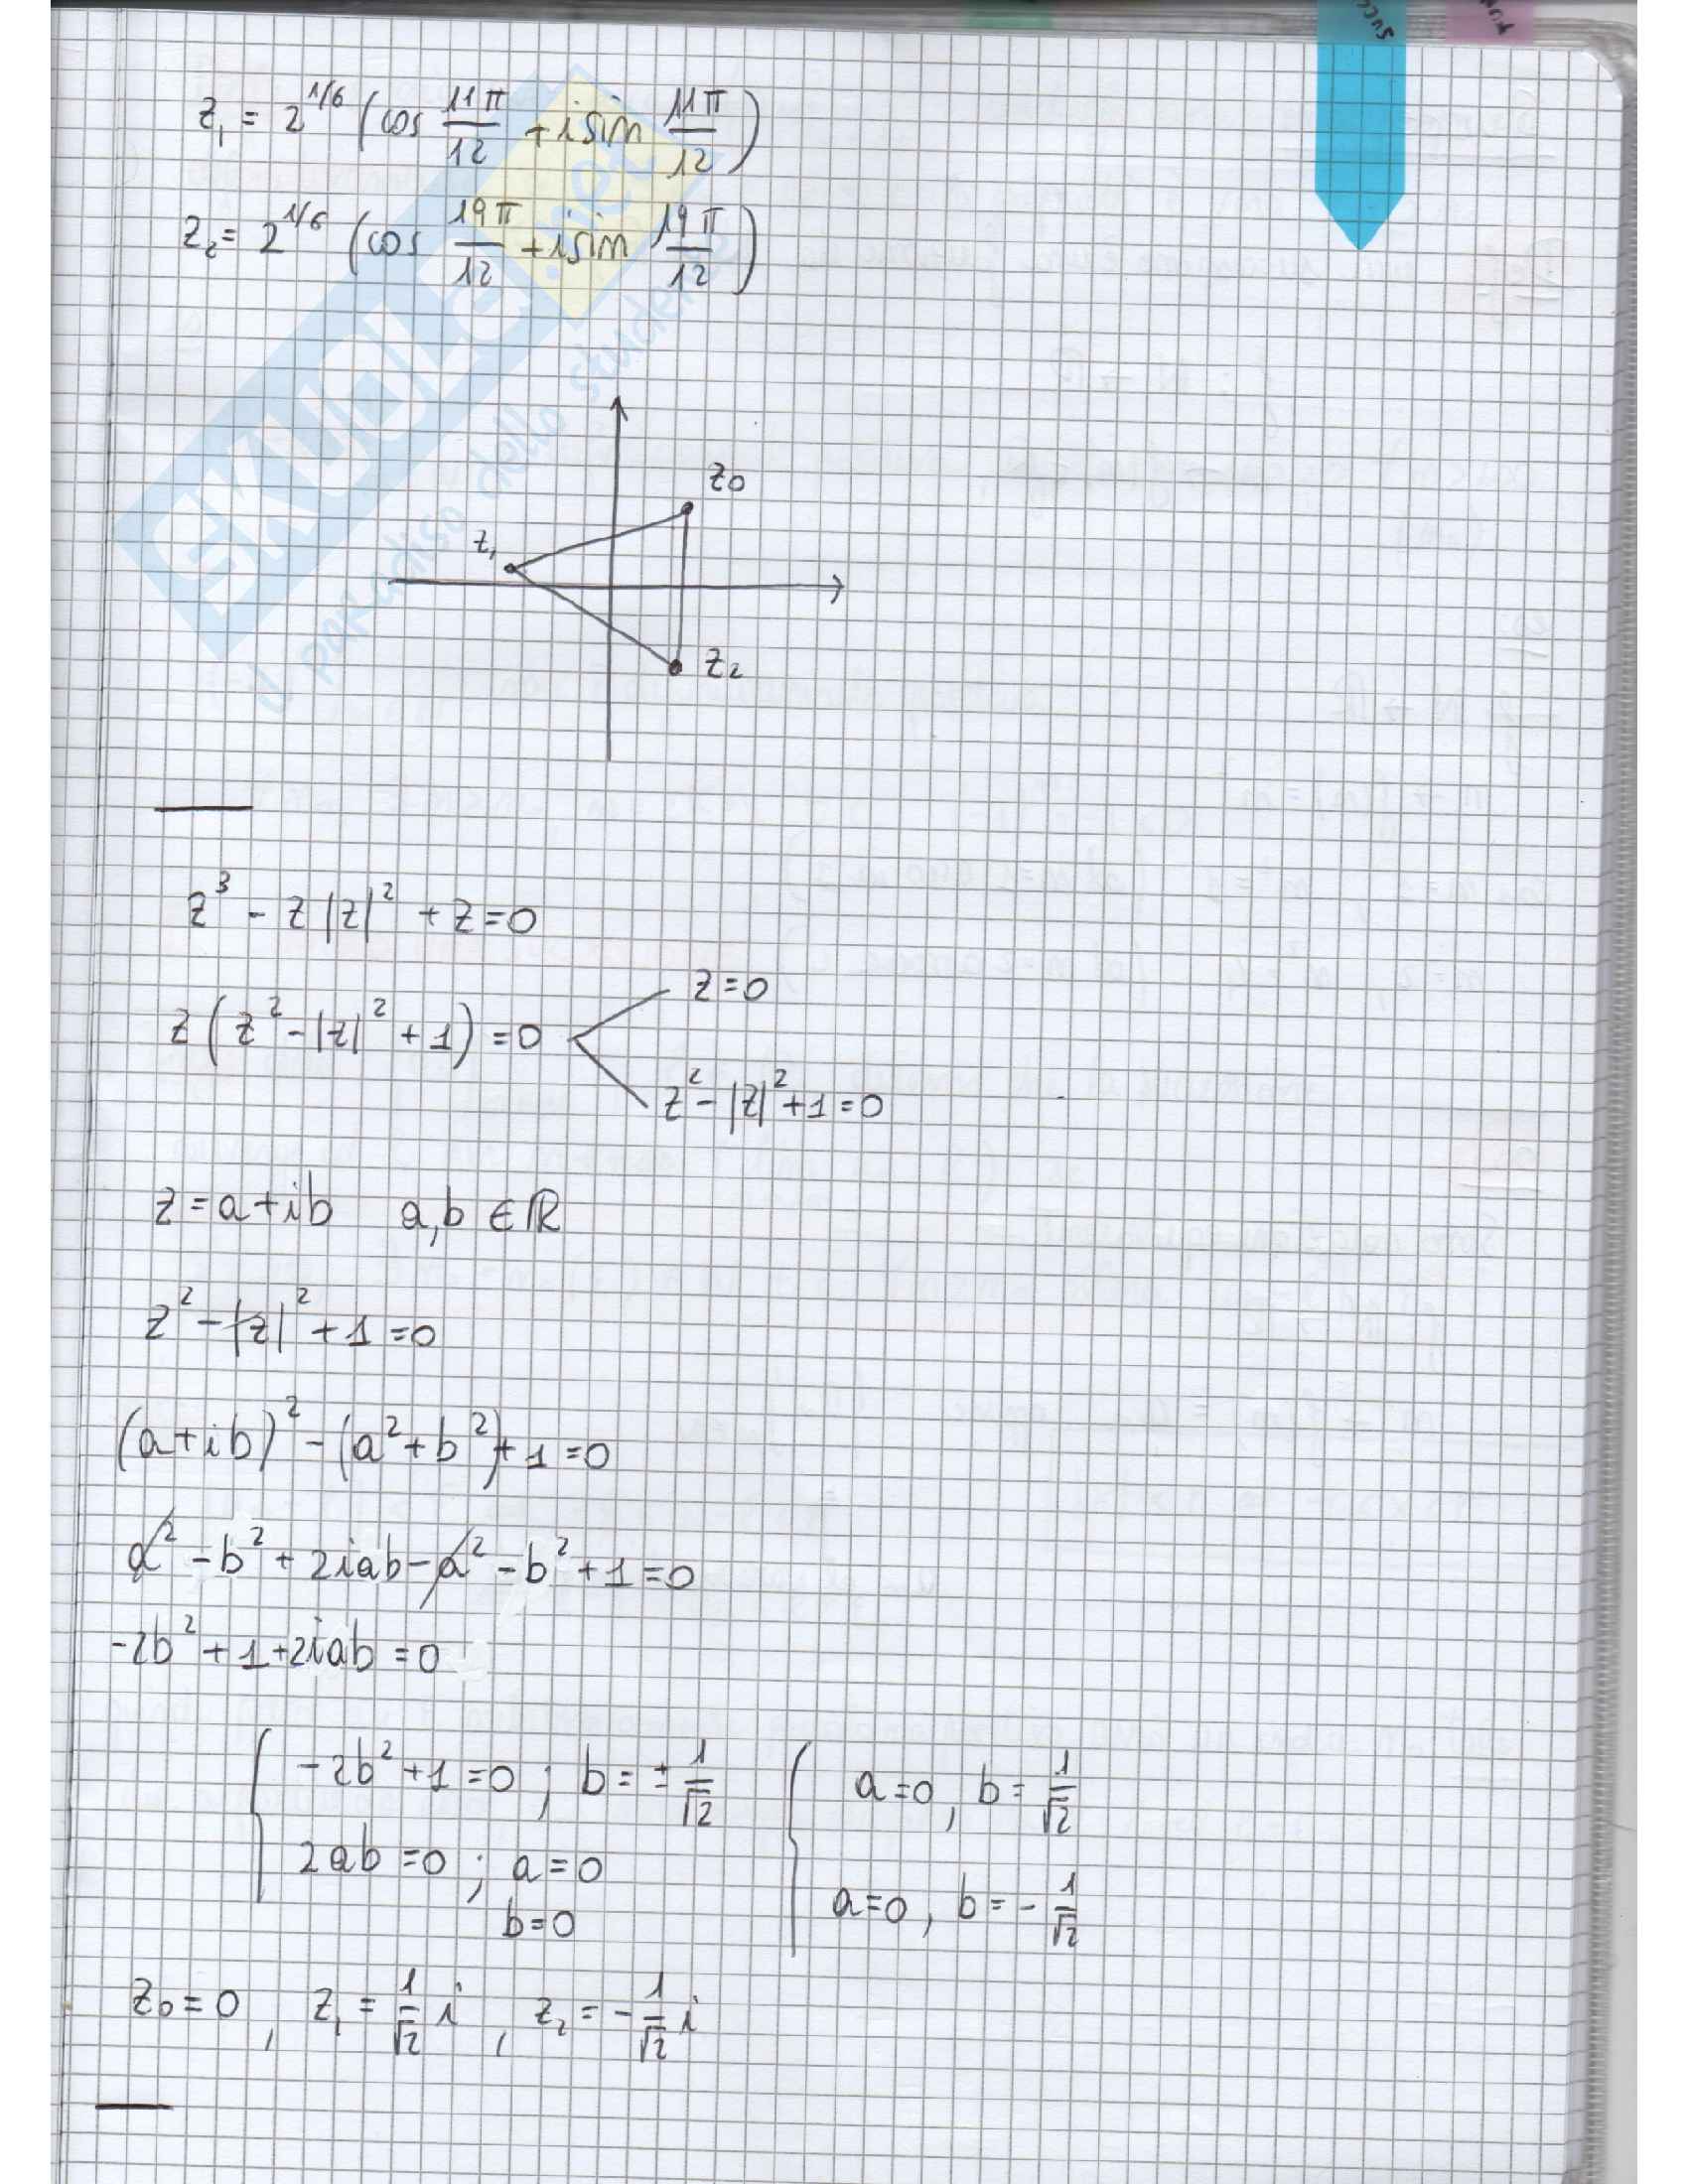 z₁ = 2^{1/6} (cos 11π/12 + i sin 11π/12)
z₂ = 2^{1/6} (cos 19π/12 + i sin 19π/12)
SKUOLA.net
il paradiso dello studente
z₀
z₁
z₂
z³ - z|z|² + z = 0
z(z² - |z|² + 1) = 0
z = 0
z² - |z|² + 1 = 0
z = a + ib a, b ∈ ℝ
z² - |z|² + 1 = 0
(a + ib)² - (a² + b²) + 1 = 0
a² - b² + 2iab - a² - b² + 1 = 0
-2b² + 1 + 2iab = 0
-2b² + 1 = 0 ; b = ± 1/√2
2ab = 0 ; a = 0
b = 0
a = 0, b = 1/√2
a = 0, b = - 1/√2
z₀ = 0 , z₁ = 1/√2 i , z₂ = - 1/√2 i